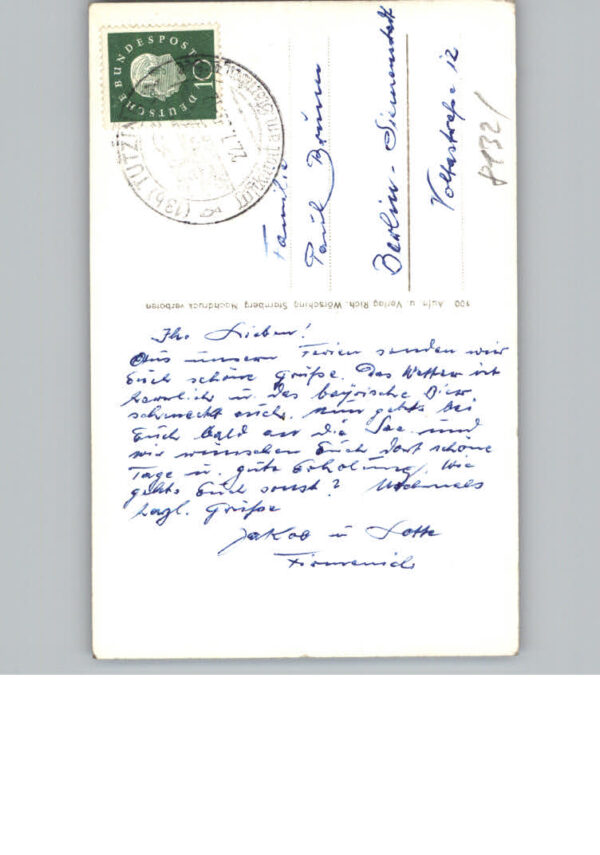 DEUTSCHE BUNDESPOST
10
(13b) TUTZING
Familie
Paul Brünn
Berlin-Siemensstadt
Voltastraße 12
8132/
100 Aufn. u. Verlag Rich. Wörsching Starnberg Nachdruck verboten
Ihr Lieben!
Aus unsern Ferien senden wir
Euch schöne Grüße. Das Wetter ist
herrlich u. das bayrische Bier
schmeckt auch. Nun gehts bei
Euch bald an die See und
wir wünschen Euch dort schöne
Tage u. gute Erholung. Wie
gehts Euch sonst? Nochmals
herzl. Grüße
Jakob u Lotte